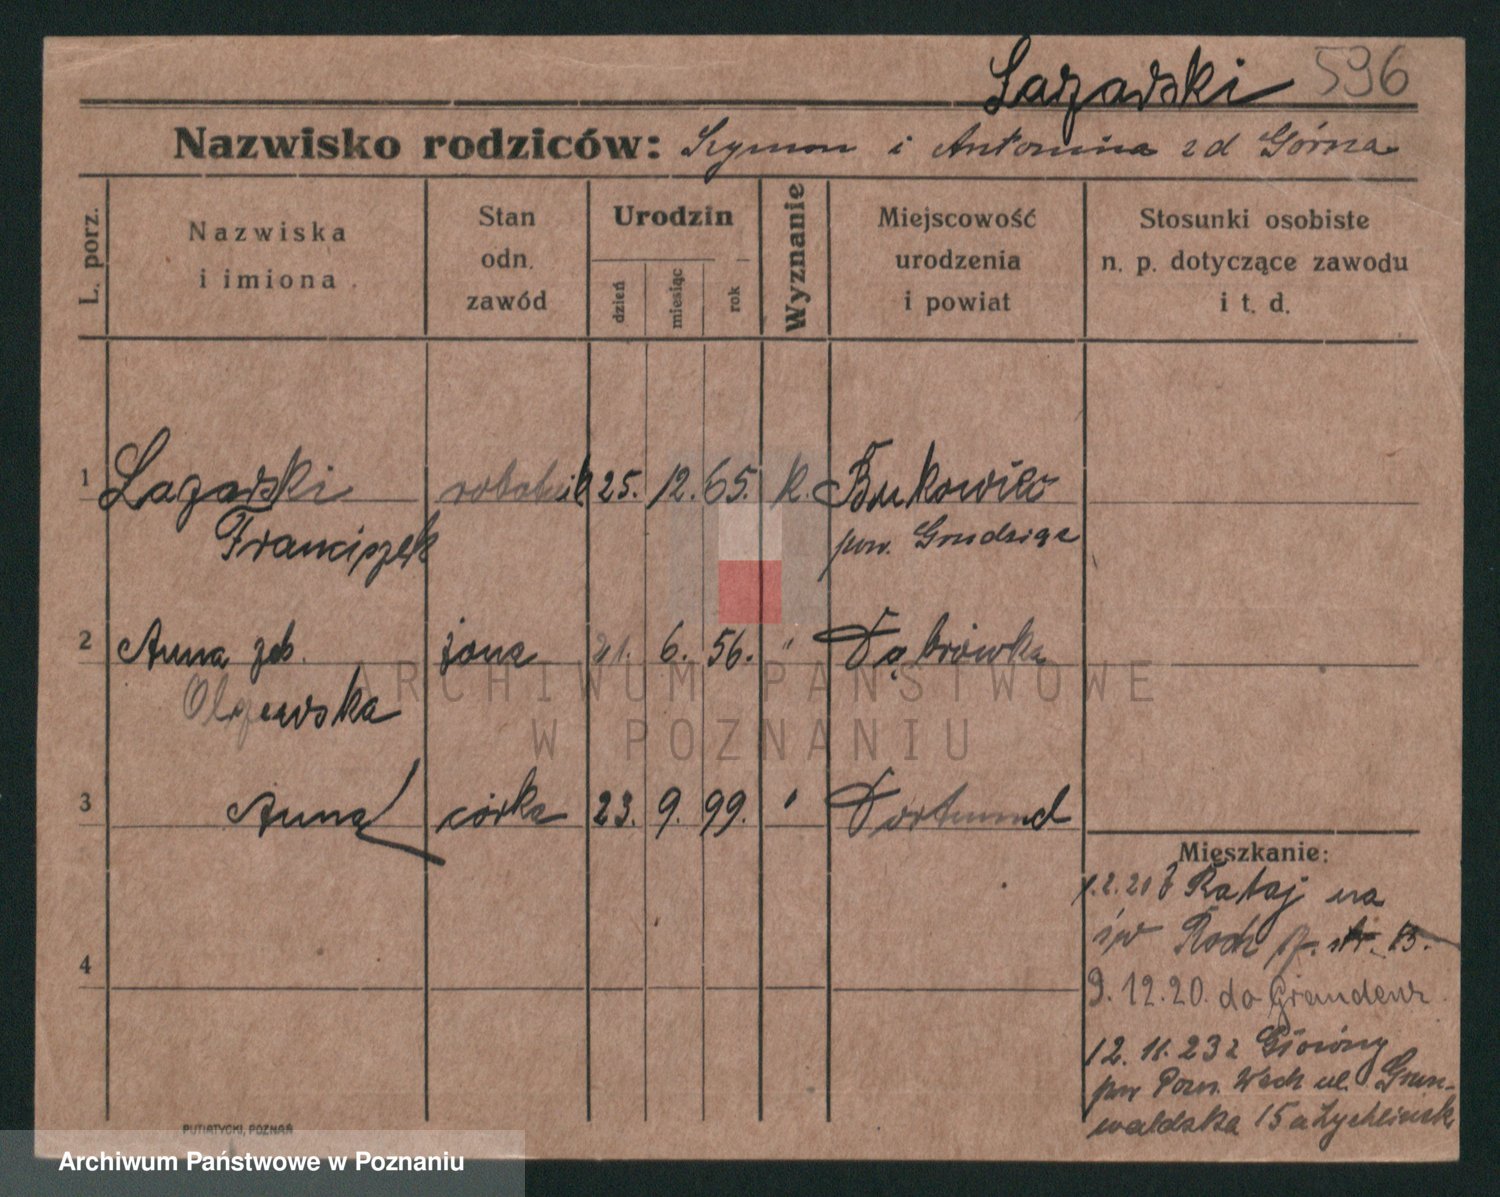 Łazarski 596
Nazwisko rodziców: Szymon i Antonina zd Górna
L. porz.
Nazwiska
i imiona
Stan
odn.
zawód
Urodzin
dzień
miesiąc
rok
Wyznanie
Miejscowość
urodzenia
i powiat
Stosunki osobiste
n. p. dotyczące zawodu
i t. d.
1 Łazarski robotnik 25. 12. 65. k. Bukowiec
Franciszek pow. Grudziąc
2 Anna żona 21. 6. 56. " Dąbrówka
Olszewska
3 Anna córka 23. 9. 99. " Dortmund
4
Mieszkanie:
1.2.20 Rataj na
św Roch str. 13.
9.12.20. do Graudenz.
12. 11. 23 z Główny
pow Pozn. Wsch ul. Grun-
waldzka 15 u
PUTIATYCKI, POZNAŃ
ARCHIWUM PAŃSTWOWE
W POZNANIU
Archiwum Państwowe w Poznaniu